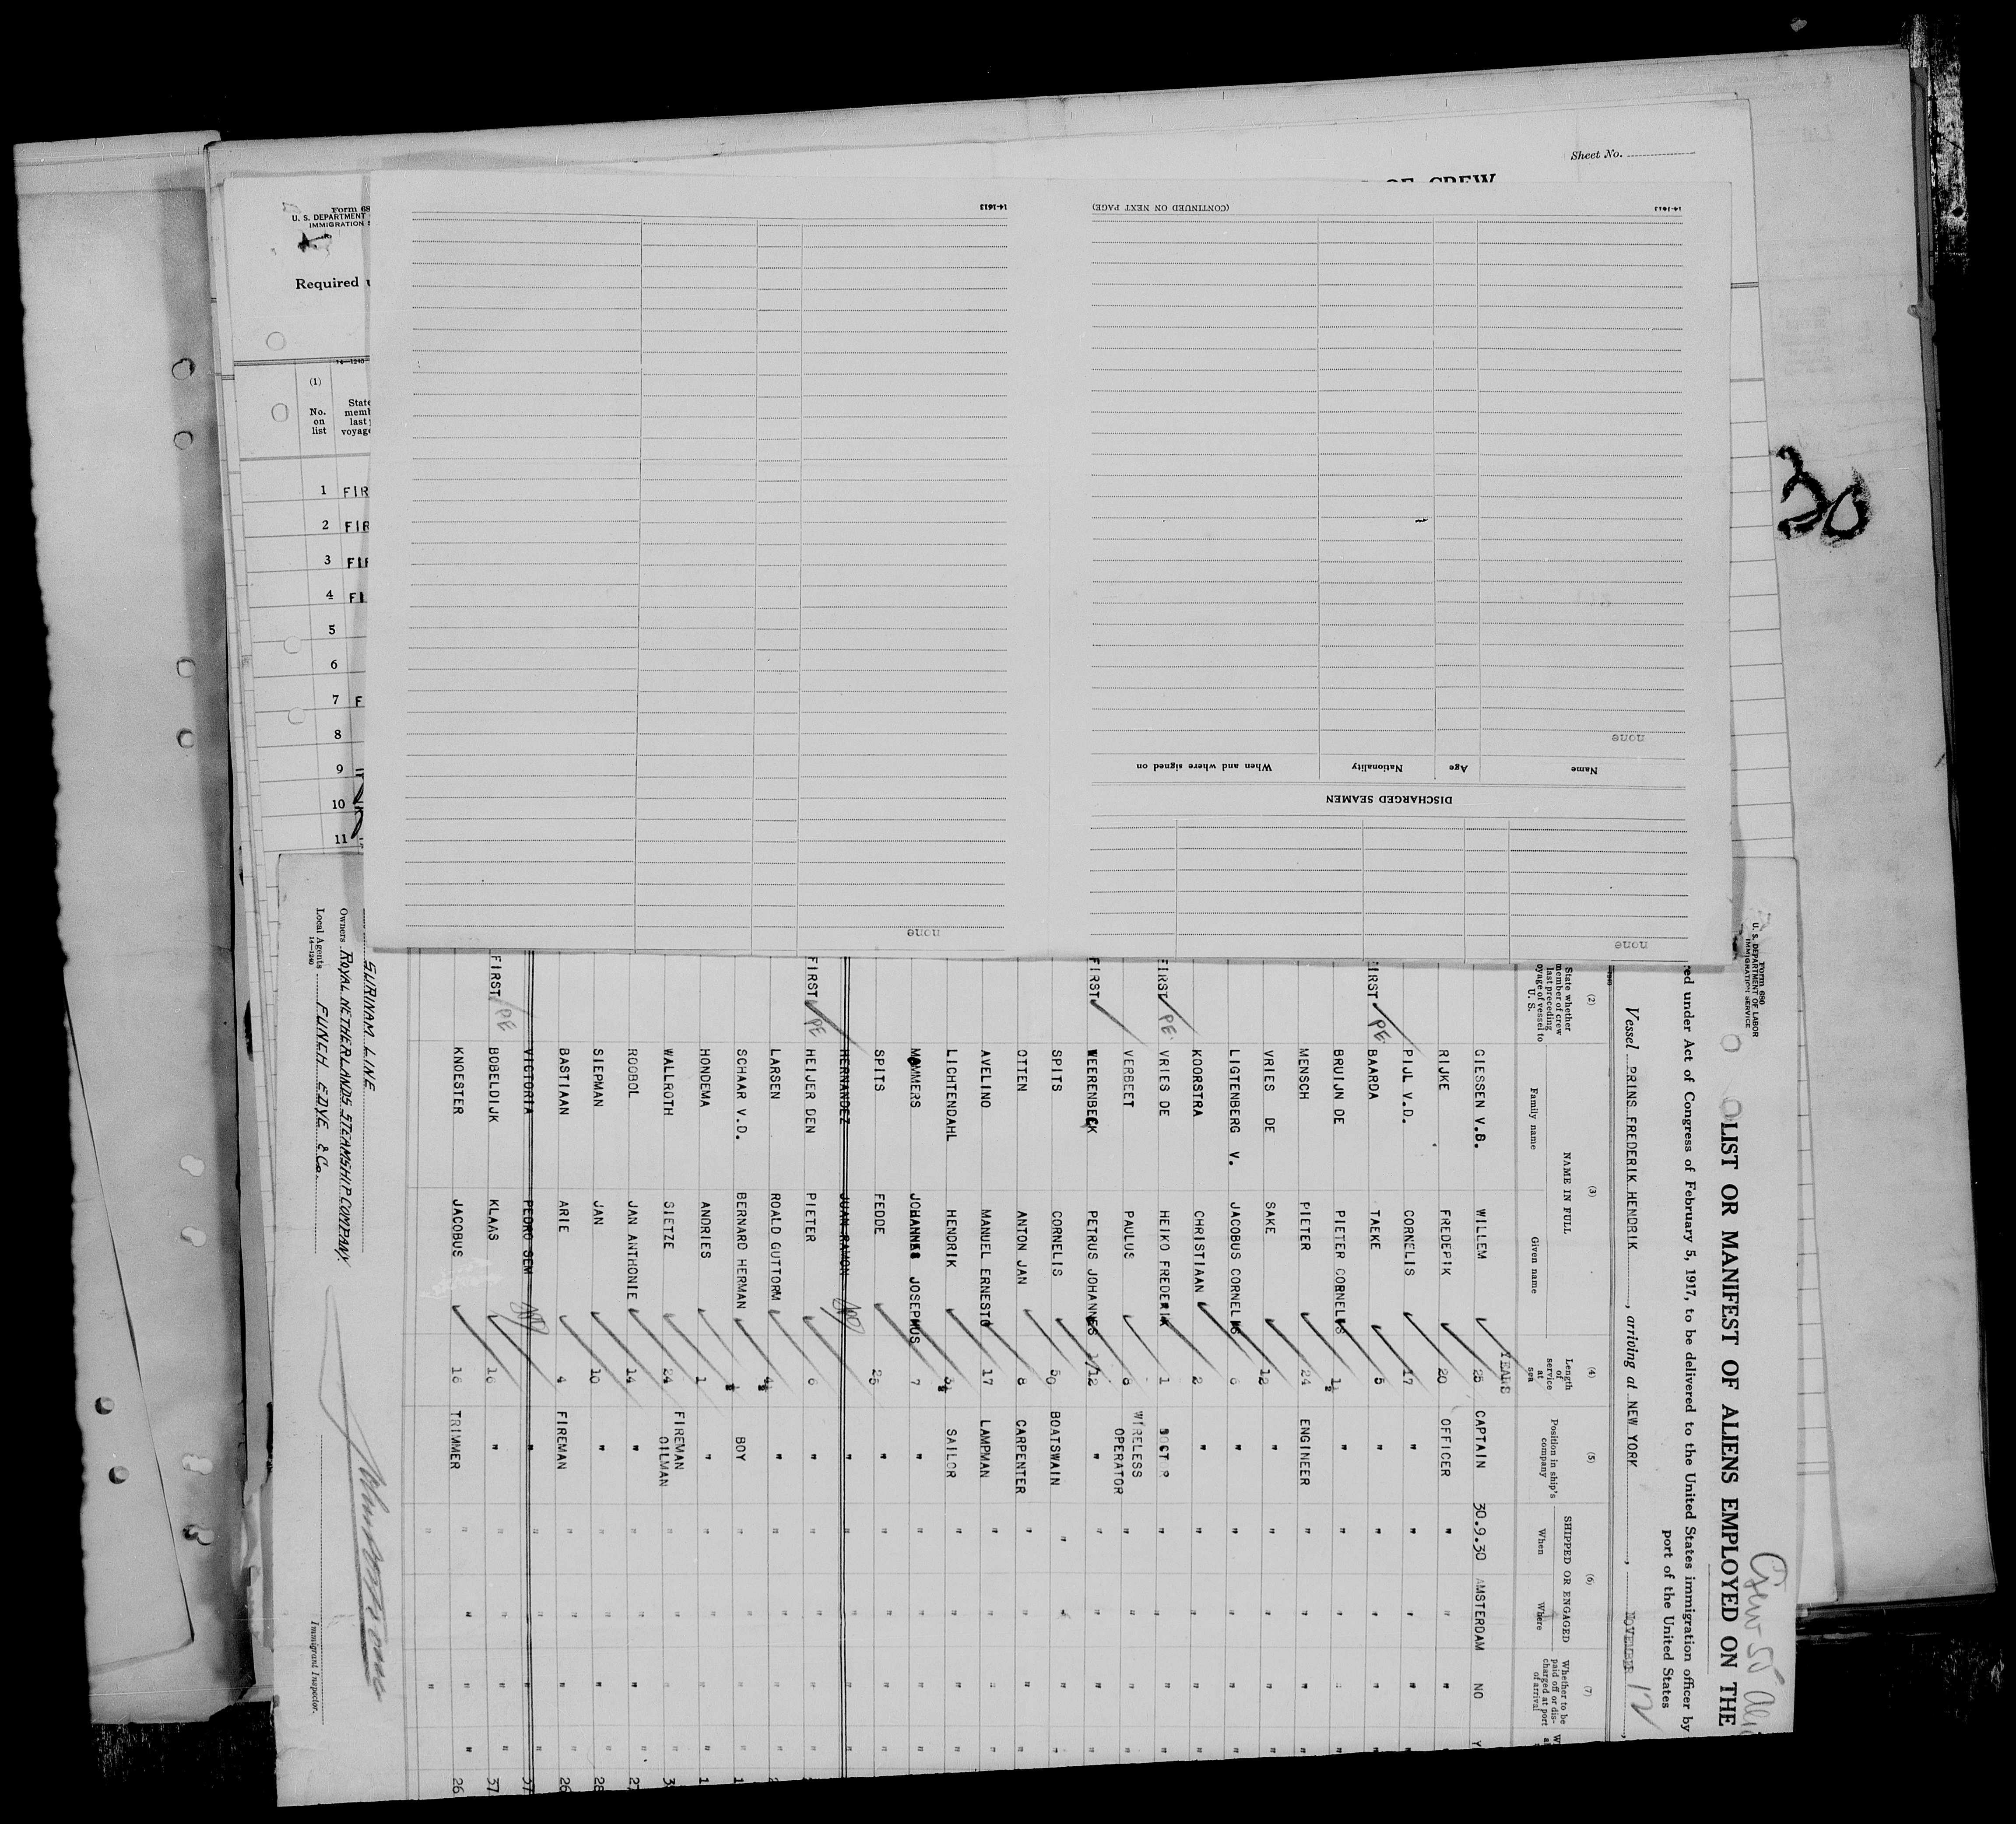 Sheet No.
OF CREW
Form 68
U. S. DEPARTMENT
IMMIGRATION S
Required u
14—1240
(1)
No.
on
list
State
memb
last p
voyage
1 FIR
2 FIR
3 FIR
4 FI
5
6
7 F
8
9
10
11
30
14-1613
(CONTINUED ON NEXT PAGE)
14-1613
none
Name
Age
Nationality
When and where signed on
DISCHARGED SEAMEN
none
none
Form 680
U. S. DEPARTMENT OF LABOR
IMMIGRATION SERVICE
Crew 55
LIST OR MANIFEST OF ALIENS EMPLOYED ON THE
red under Act of Congress of February 5, 1917, to be delivered to the United States immigration officer by
port of the United States
Vessel PRINS FREDERIK HENDRIK, arriving at NEW YORK, NOVEMBER 12
(2) (3) (4) (5) (6) (7)
State whether member of crew last preceding voyage of vessel to U. S.
NAME IN FULL
Family name
Given name
Length of service at sea
Position in ship's company
SHIPPED OR ENGAGED
When
Where
Whether to be paid off or discharged at port of arrival
YEARS
GIESSEN V.D. WILLEM 25 CAPTAIN 30.9.30 AMSTERDAM NO Y
RIJKE FREDERIK 20 OFFICER " " "
PIJL V.D. CORNELIS 17 " " " "
FIRST PE BAARDA TAEKE 5 " " " "
BRUIJN DE PIETER CORNELUS 1½ " " " "
MENSCH PIETER 24 ENGINEER " " "
VRIES DE SAKE 12 " " " "
LIGTENBERG V. JACOBUS CORNELUS 6 " " " "
KOORSTRA CHRISTIAAN 2 " " " "
FIRST PE VRIES DE HEIKO FREDERIK 1 DOCTOR " " "
VERBEET PAULUS 8 WIRELESS OPERATOR " " "
FIRST WEERENBECK PETRUS JOHANNES 1/12 " " " "
SPITS CORNELIS 50 BOATSWAIN " " "
OTTEN ANTON JAN 8 CARPENTER " " "
AVELINO MANUEL ERNESTO 17 LAMPMAN " " "
LICHTENDAHL HENDRIK 3½ SAILOR " " "
MOMMERS JOHANNES JOSEPHUS 7 " " " "
SPITS FEDDE 25 " " " "
HERNANDEZ JUAN RAMON " " " "
FIRST PE HEIJER DEN PIETER 6 " " " "
LARSEN ROALD GUTTORM 4½ " " " " 2
SCHAAR V.D. BERNARD HERMAN ½ BOY " " " 1
HONDEMA ANDRIES 1 " " " " 1
WALLROTH SIETZE 24 FIREMAN OILMAN " " " 3
ROOBOL JAN ANTHONIE 14 " " " " 27
SIEPMAN JAN 10 " " " " 28
BASTIAAN ARIE 4 FIREMAN " " " 26
VICTORIA PEDRO SEM " " " " 37
FIRST PE BOBELDIJK KLAAS 16 " " " " 37
KNOESTER JACOBUS 16 TRIMMER " " " 26
SURINAM LINE
Owners ROYAL NETHERLANDS STEAMSHIP COMPANY.
Local Agents FUNCH EDYE & Co.
14—1240
Immigrant Inspector.